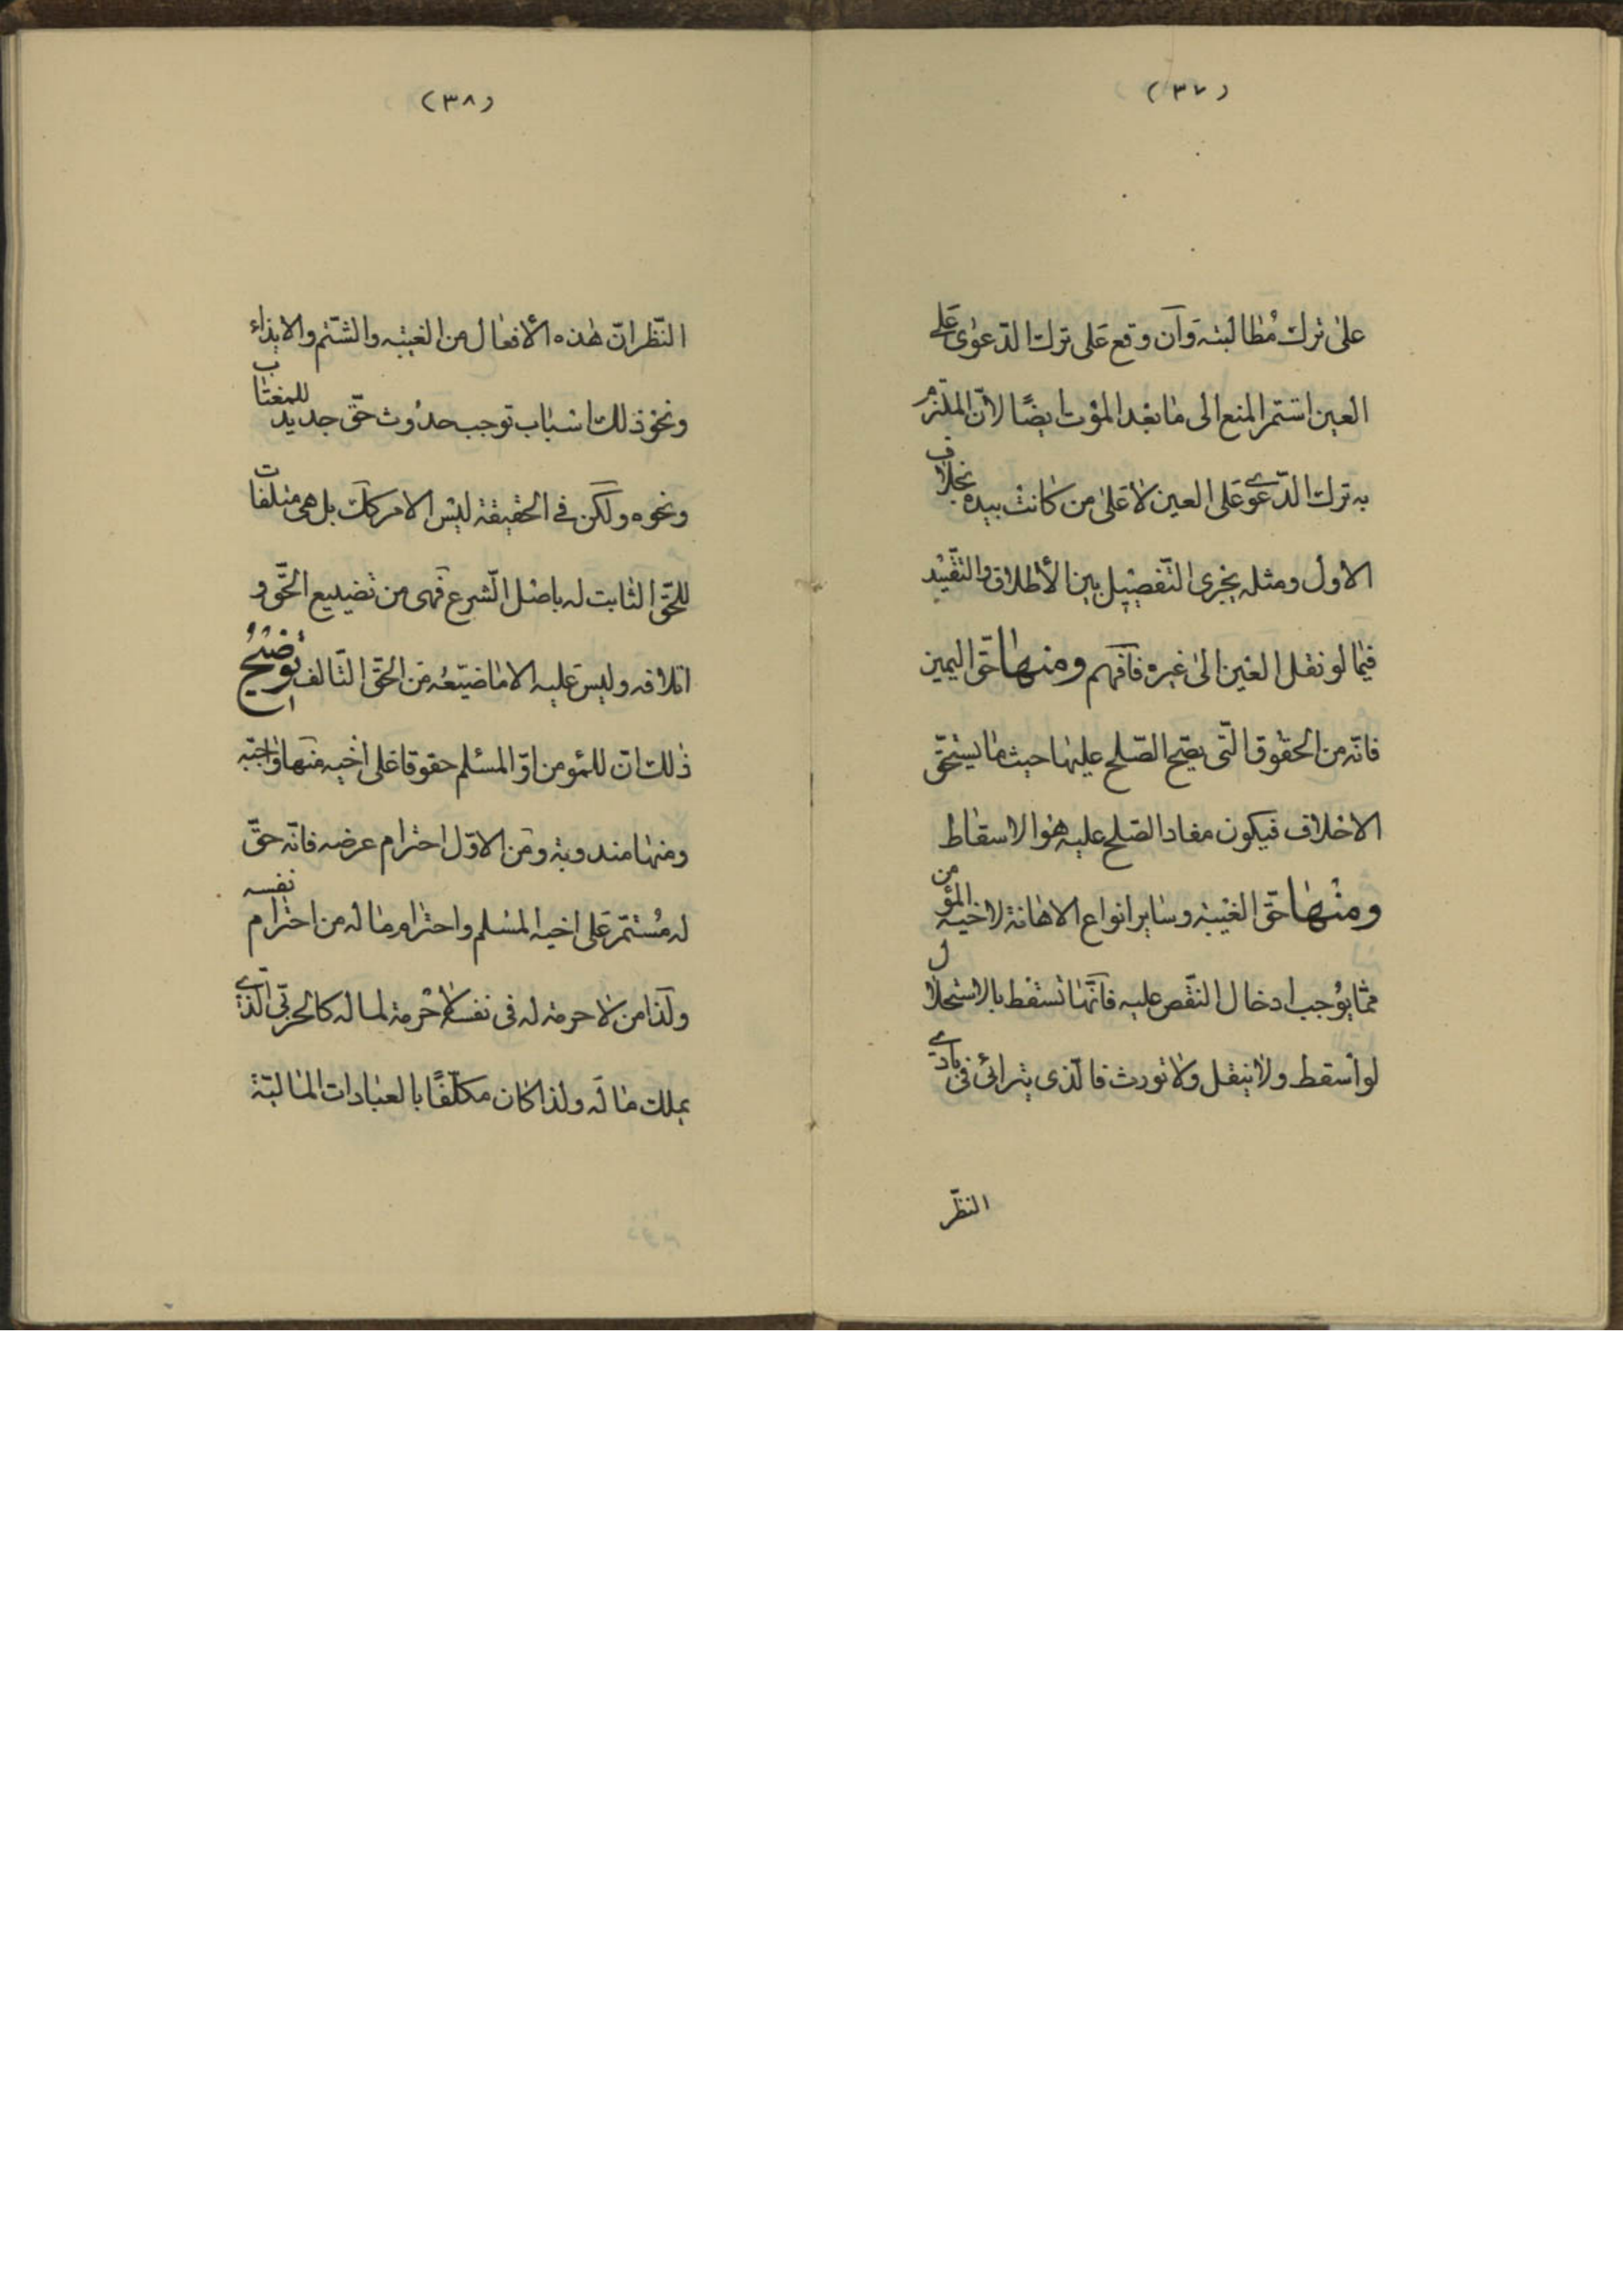 (٣٧)
على ترك مُطالبته وَان وقع عَلى ترك الدّعوٰى عَلى
العين استمر المنع الى مٰا بعد الموْت ايضًا لانّ الملتزم
به ترك الدّعوى عَلى العين لٰا عَلىٰ من كٰانتْ بيده بخلاف
الاول ومثله يجرى التّفصيل بين الأطلاق والتّقييد
فيمٰا لو نقل العَين الىٰ غيره فافهم ومنهٰا حقّ اليمين
فانّه من الحقوق الّتى يصحّ الصّلح عليهٰا حيث مٰا يستحقّ
الاحلاف فيكون مفاد الصّلح عليه هوَ الاسقاط
ومنْهٰا حقّ الغيْبة وسٰاير انواع الاهٰانة لاخيه المؤمن
ممّا يوُجب ادخال النقّص عليه فانّهٰا تسقط بالاستحلال
لو اسقط ولٰا ينتقل ولٰا تورث فالّذى يترائىٰ فى بادى
النظّر
(٣٨)
النّظر انّ هٰذه الأفعٰال من الغيبه والشّتم والايذاء
ونحو ذلك اسبٰاب توجب حدُوث حقّ جديد للمغتٰاب
ونحوه ولٰكن فى الحقيقة ليْس الامر كك بل هى متلفات
للحقّ الثابت له باصْل الشرع فهى من تضييع الحَقّ و
اتلافه وليس عَليه الا مٰا ضيّعُه من الحقّ التّالف توضيح
ذٰلك انّ للمؤمن او المسْلم حقوقا عَلى اخيه منهٰا وٰاجبة
ومنهٰا مندوبة ومن الاوّل احترام عرضه فانّه حقّ
له مُسْتمر عَلى اخيه المسْلم واحترٰام مٰاله من احترٰام نفسه
ولذا من لٰا حرمة له فى نفسه لٰا حُرمة لمٰاله كالحربّى الّذى
يملك مٰاله ولذا كٰان مكلّفًا بالعبٰادات المٰاليّة